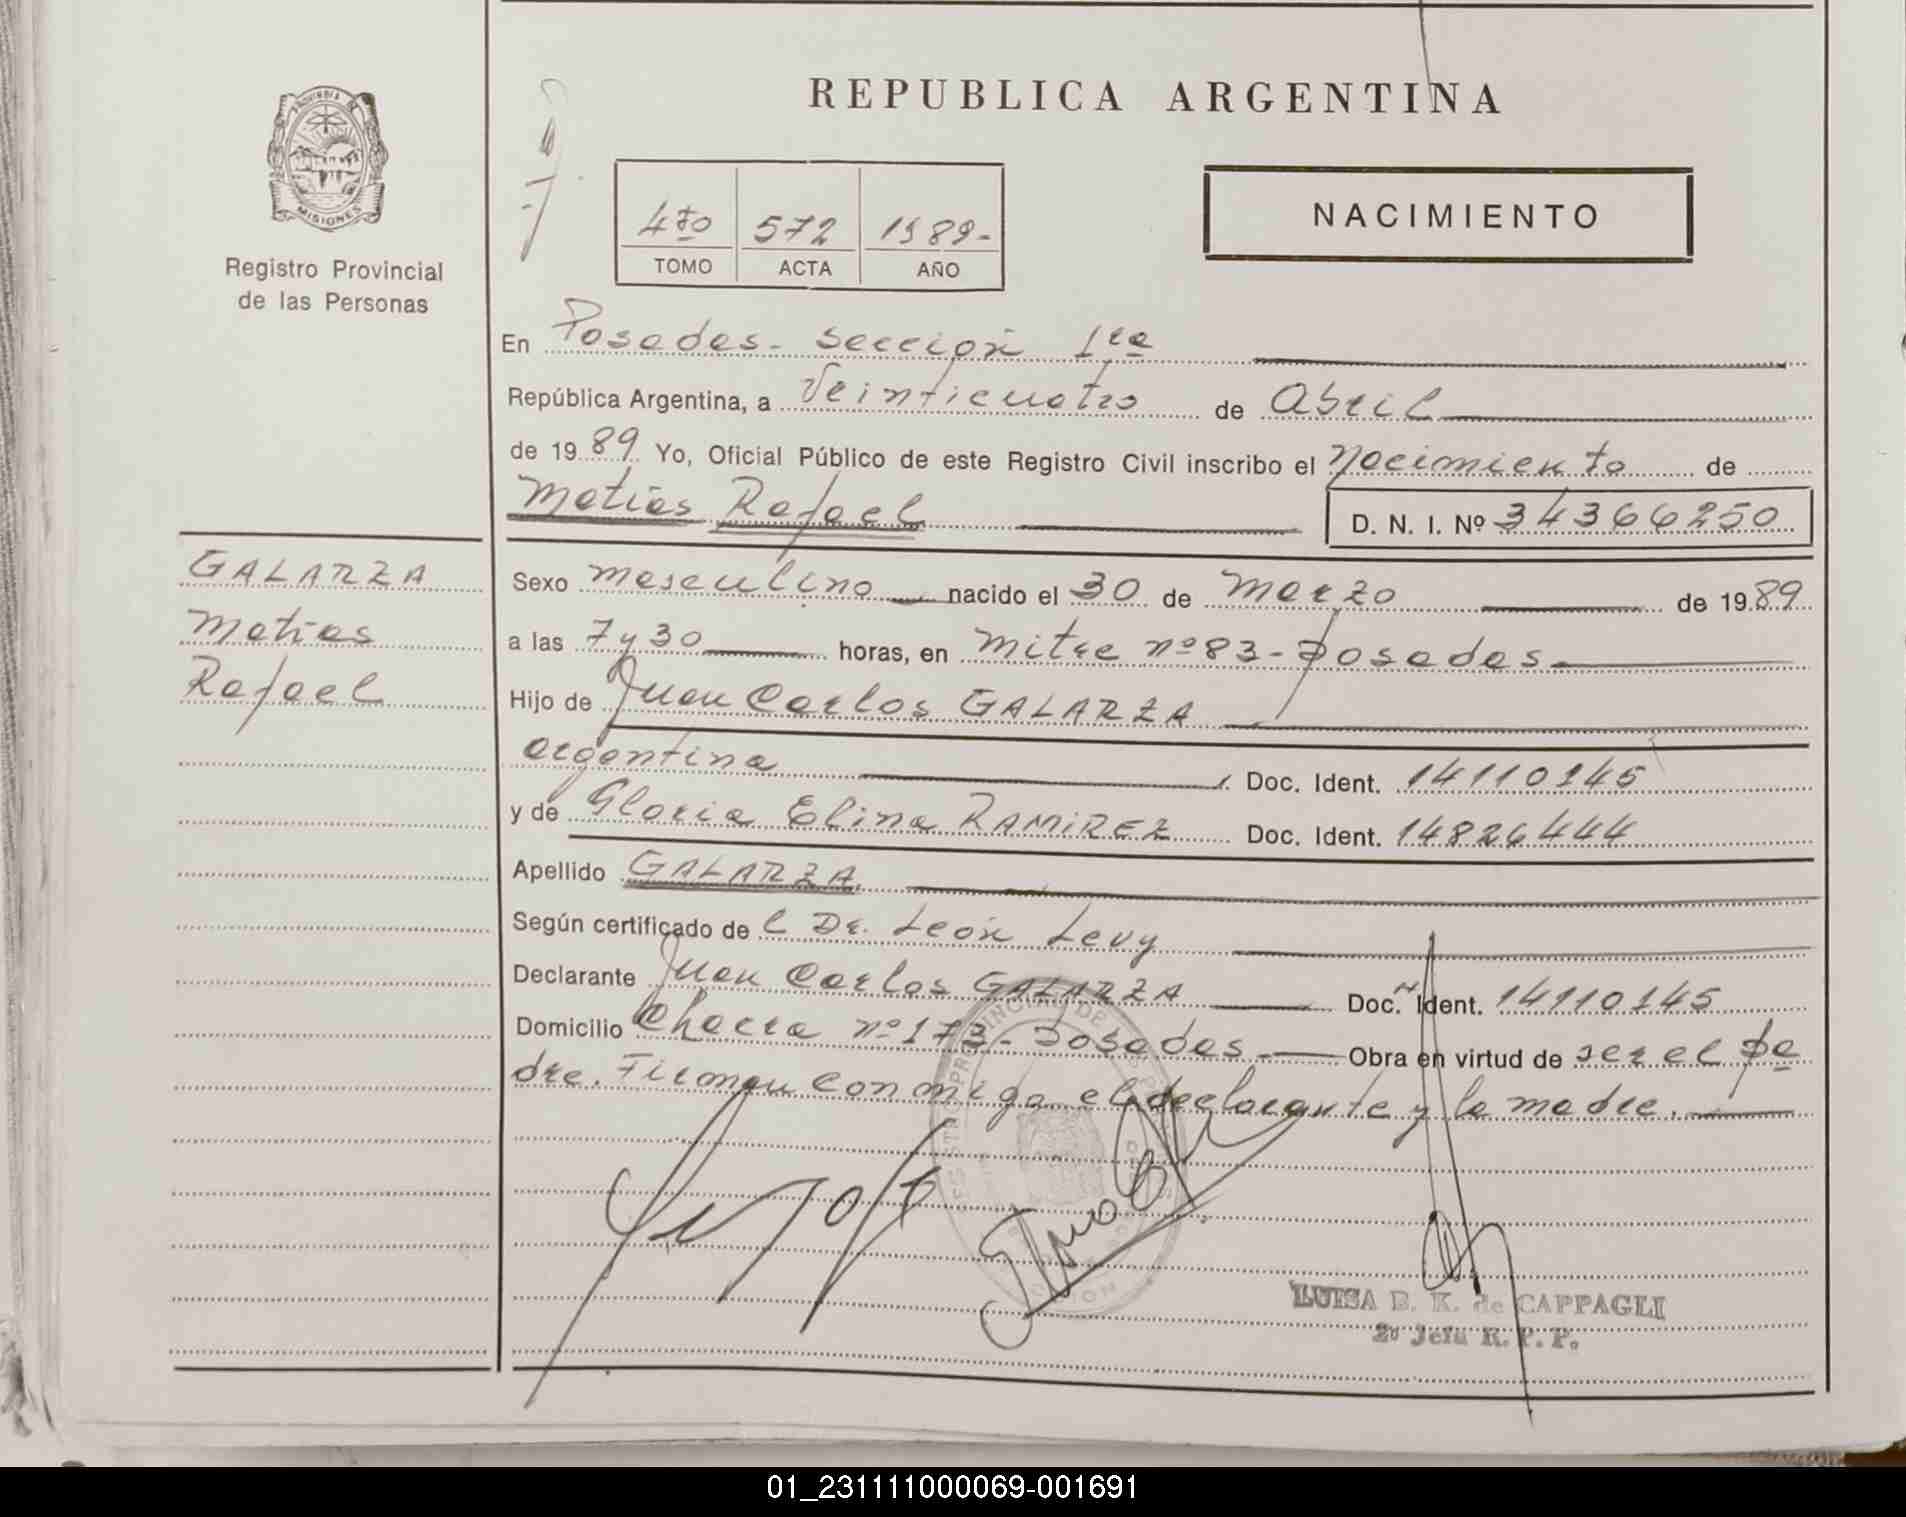 REPUBLICA ARGENTINA
PROVINCIA DE
MISIONES
Registro Provincial
de las Personas
4to 572 1989-
TOMO ACTA AÑO
NACIMIENTO
En Posadas - sección 1ra
República Argentina, a Veinticuatro de Abril
de 1989 Yo, Oficial Público de este Registro Civil inscribo el nacimiento de
Matías Rafael D. N. I. Nº 34366250
GALARZA
Matías
Rafael
Sexo masculino nacido el 30 de Marzo de 1989
a las 7 y 30 horas, en Mitre nº 83 - Posadas
Hijo de Juan Carlos GALARZA
argentina Doc. Ident. 14110145
y de Gloria Elina RAMIREZ Doc. Ident. 14826444
Apellido GALARZA
Según certificado de l Dr. León Levy
Declarante Juan Carlos GALARZA Doc. Ident. 14110145
Domicilio Chacra nº 173 - Posadas Obra en virtud de ser el pa
dre. Firman conmigo el declarante y la madre.
LUISA B. K. de CAPPAGLI
2º Jefa R. P. P.
01_231111000069-001691